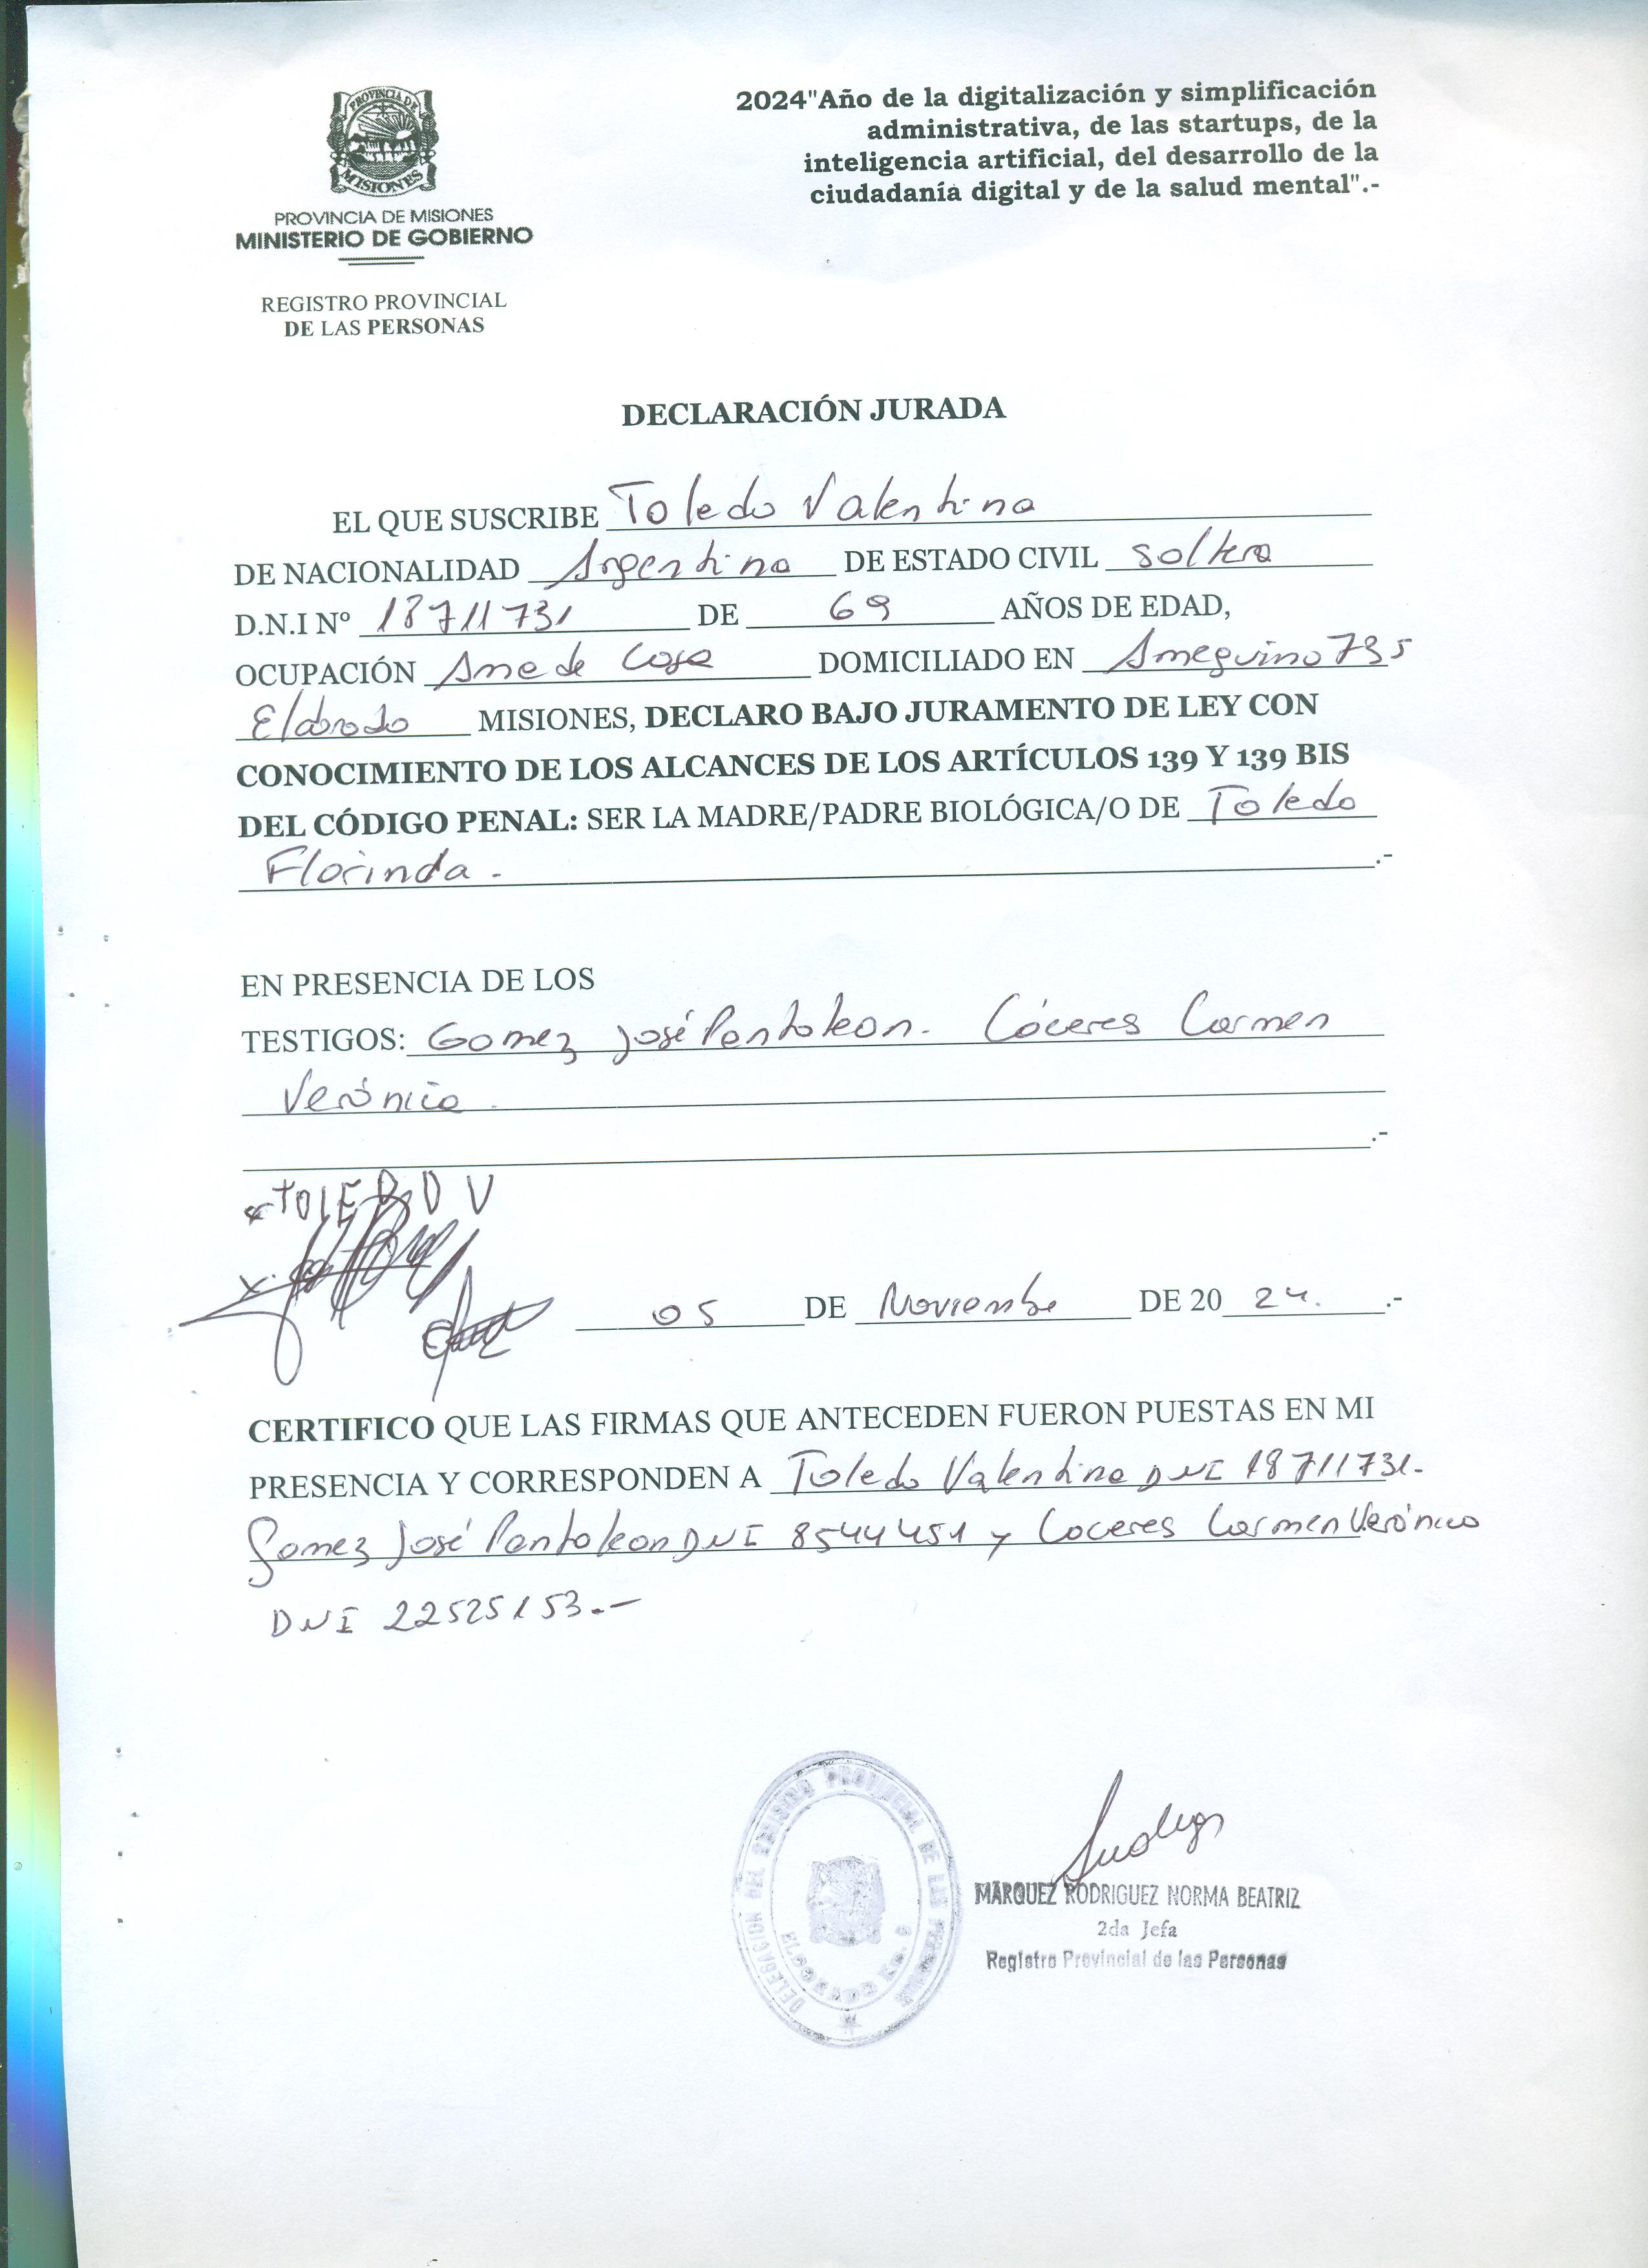 PROVINCIA DE
MISIONES
PROVINCIA DE MISIONES
MINISTERIO DE GOBIERNO
REGISTRO PROVINCIAL
DE LAS PERSONAS
2024"Año de la digitalización y simplificación
administrativa, de las startups, de la
inteligencia artificial, del desarrollo de la
ciudadanía digital y de la salud mental".-
DECLARACIÓN JURADA
EL QUE SUSCRIBE Toledo Valentina
DE NACIONALIDAD Argentina DE ESTADO CIVIL soltera
D.N.I Nº 18711731 DE 69 AÑOS DE EDAD,
OCUPACIÓN Ama de Casa DOMICILIADO EN Ameguino 735
Eldorado MISIONES, DECLARO BAJO JURAMENTO DE LEY CON
CONOCIMIENTO DE LOS ALCANCES DE LOS ARTÍCULOS 139 Y 139 BIS
DEL CÓDIGO PENAL: SER LA MADRE/PADRE BIOLÓGICA/O DE Toledo
Florinda. .-
EN PRESENCIA DE LOS
TESTIGOS: Gomez José Pantaleon. Cáceres Carmen
Verónica.
.-
TOLEDO V
05 DE Noviembre DE 20 24. .-
CERTIFICO QUE LAS FIRMAS QUE ANTECEDEN FUERON PUESTAS EN MI
PRESENCIA Y CORRESPONDEN A Toledo Valentina DNI 18711731.
Gomez José Pantaleon DNI 8544451 y Caceres Carmen Verónica
DNI 22525153.-
DELEGACION DEL REGISTRO PROVINCIAL DE LAS PERSONAS
ELDORADO
MARQUEZ RODRIGUEZ NORMA BEATRIZ
2da Jefa
Registro Provincial de las Personas